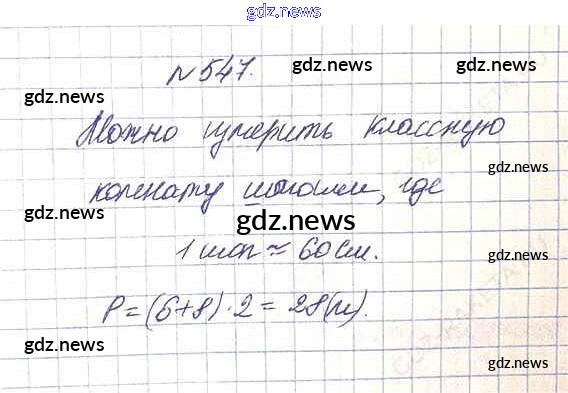 gdz.news
№ 547.
gdz.news
gdz.news
gdz.news
Можно измерить классную
gdz.news
gdz.news
комнату шагами, где
gdz.news
gdz.news
1 шаг ≈ 60 см.
gdz.news
P = (6+8)·2 = 28(м).
gdz.news
gdz.news
gdz.news